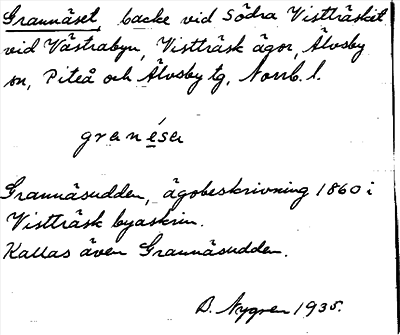 Grannäset, backe vid Södra Vistträsket
vid Västrabyn, Vistträsk ägor, Älvsby
sn, Piteå och Älvsby tg, Norrb. l.
granésa
Grannäsudden, ägobeskrivning 1860 i
Vistträsk byaskrin.
Kallas även Grannäsudden.
B. Nygren 1935.